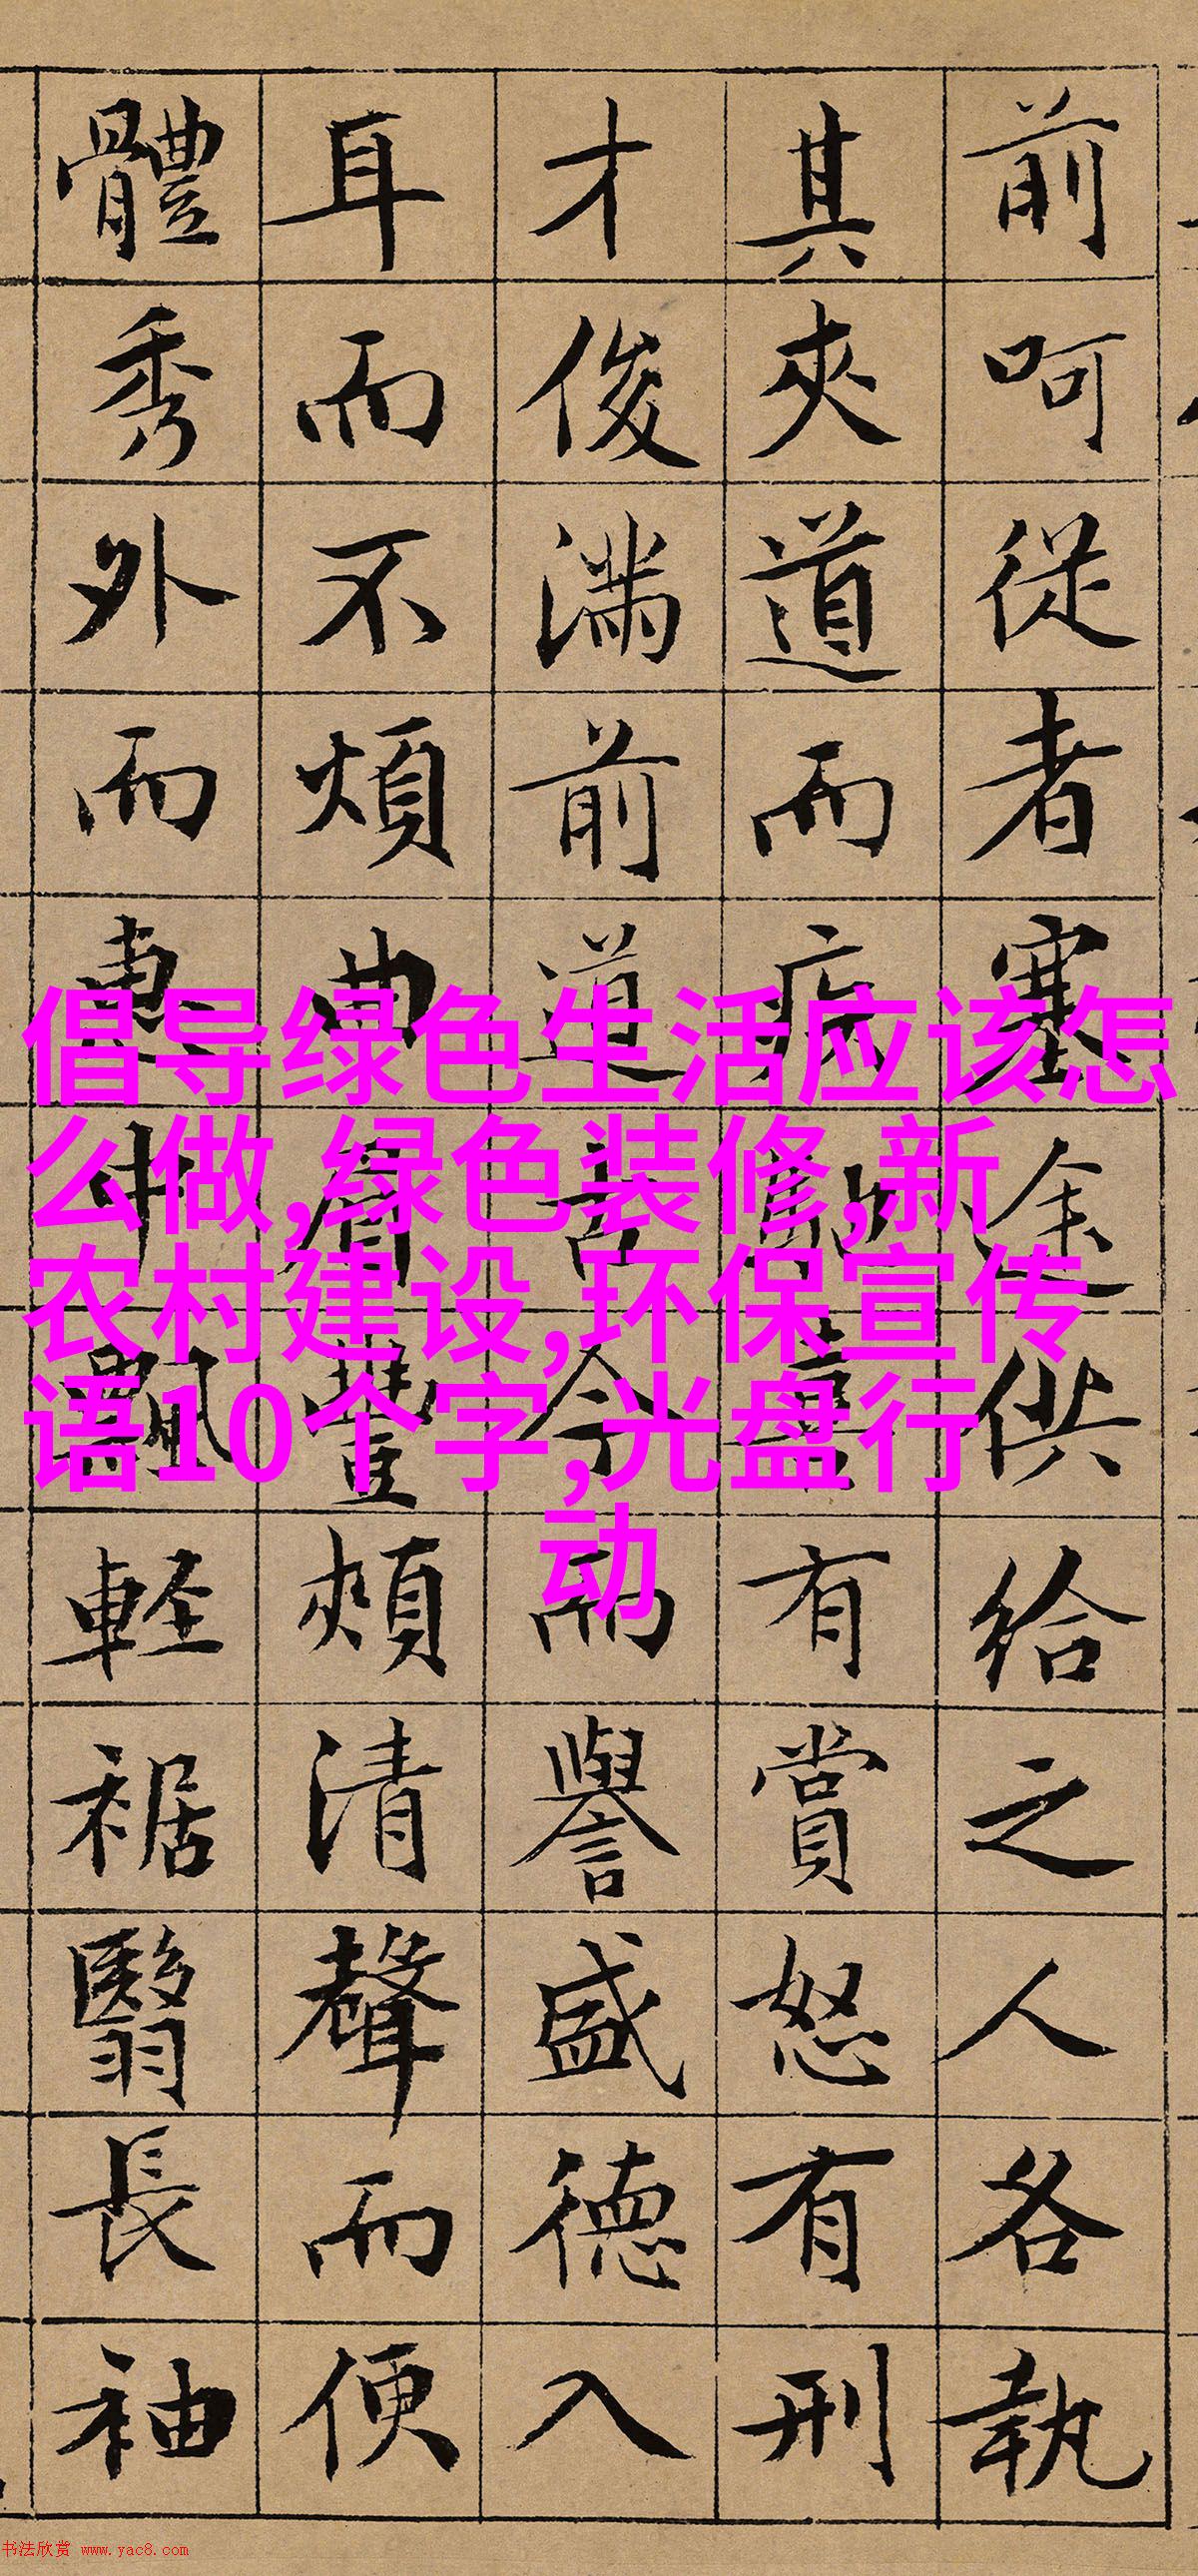 前呵從者塞途供給之人各執
其夾道而疾馳喜有賞怒有刑
才俊滿前道古今而譽盛德入
耳而不煩曲眉豐頰清聲而便
體秀外而惠中飄輕裾翳長袖
倡导绿色生活应该怎
么做,绿色装修,新
农村建设,环保宣传
语10个字,光盘行
动
书法欣赏 www.yac8.com